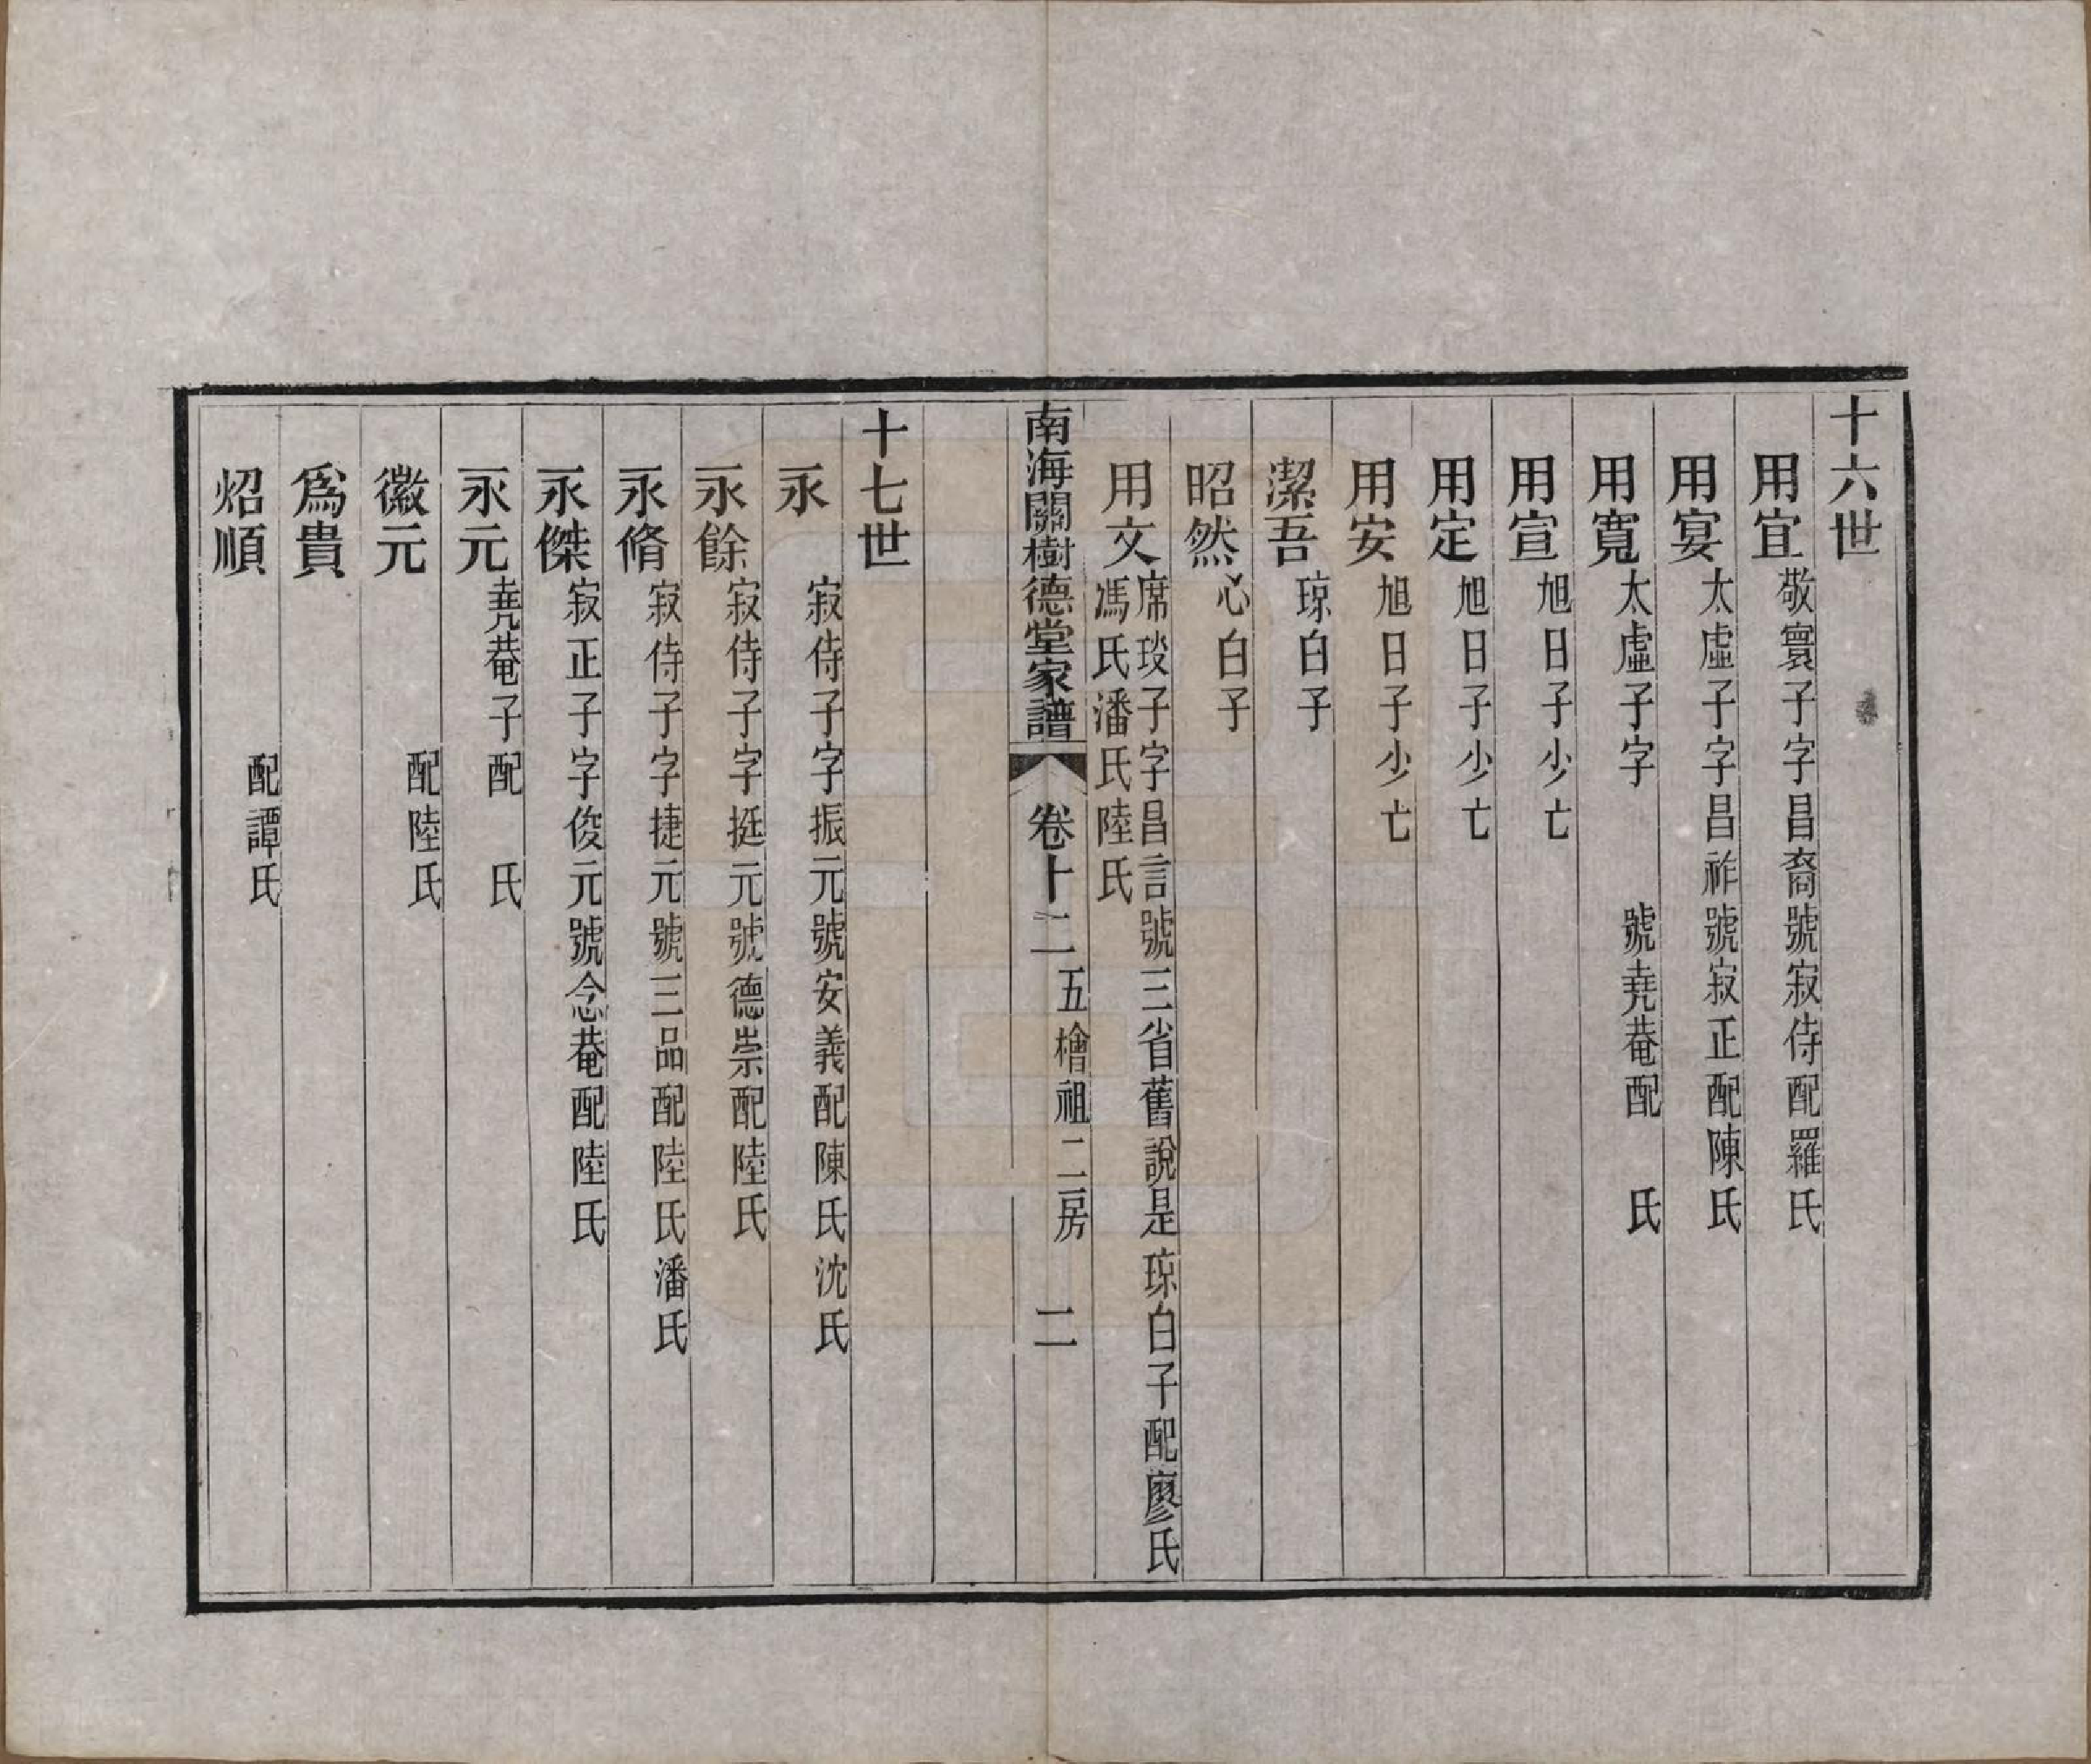 十六世
用宜 敬寰子字昌裔號寂侍配羅氏
用宴 太虛子字昌祚號寂正配陳氏
用寬 太虛子字　號堯菴配　氏
用宣 旭日子少亡
用定 旭日子少亡
用安 旭日子少亡
潔吾 琼白子
昭然 心白子
用文 席琰子字昌言號三省舊說是琼白子配廖氏
馮氏潘氏陸氏
南海關樹德堂家譜 卷十二 五檜祖二房 二
十七世
永 寂侍子字振元號安義配陳氏沈氏
永餘 寂侍子字挺元號德崇配陸氏
永脩 寂侍子字捷元號三品配陸氏潘氏
永傑 寂正子字俊元號念菴配陸氏
永元 堯菴子配　氏
徽元 配陸氏
爲貴
炤順 配譚氏